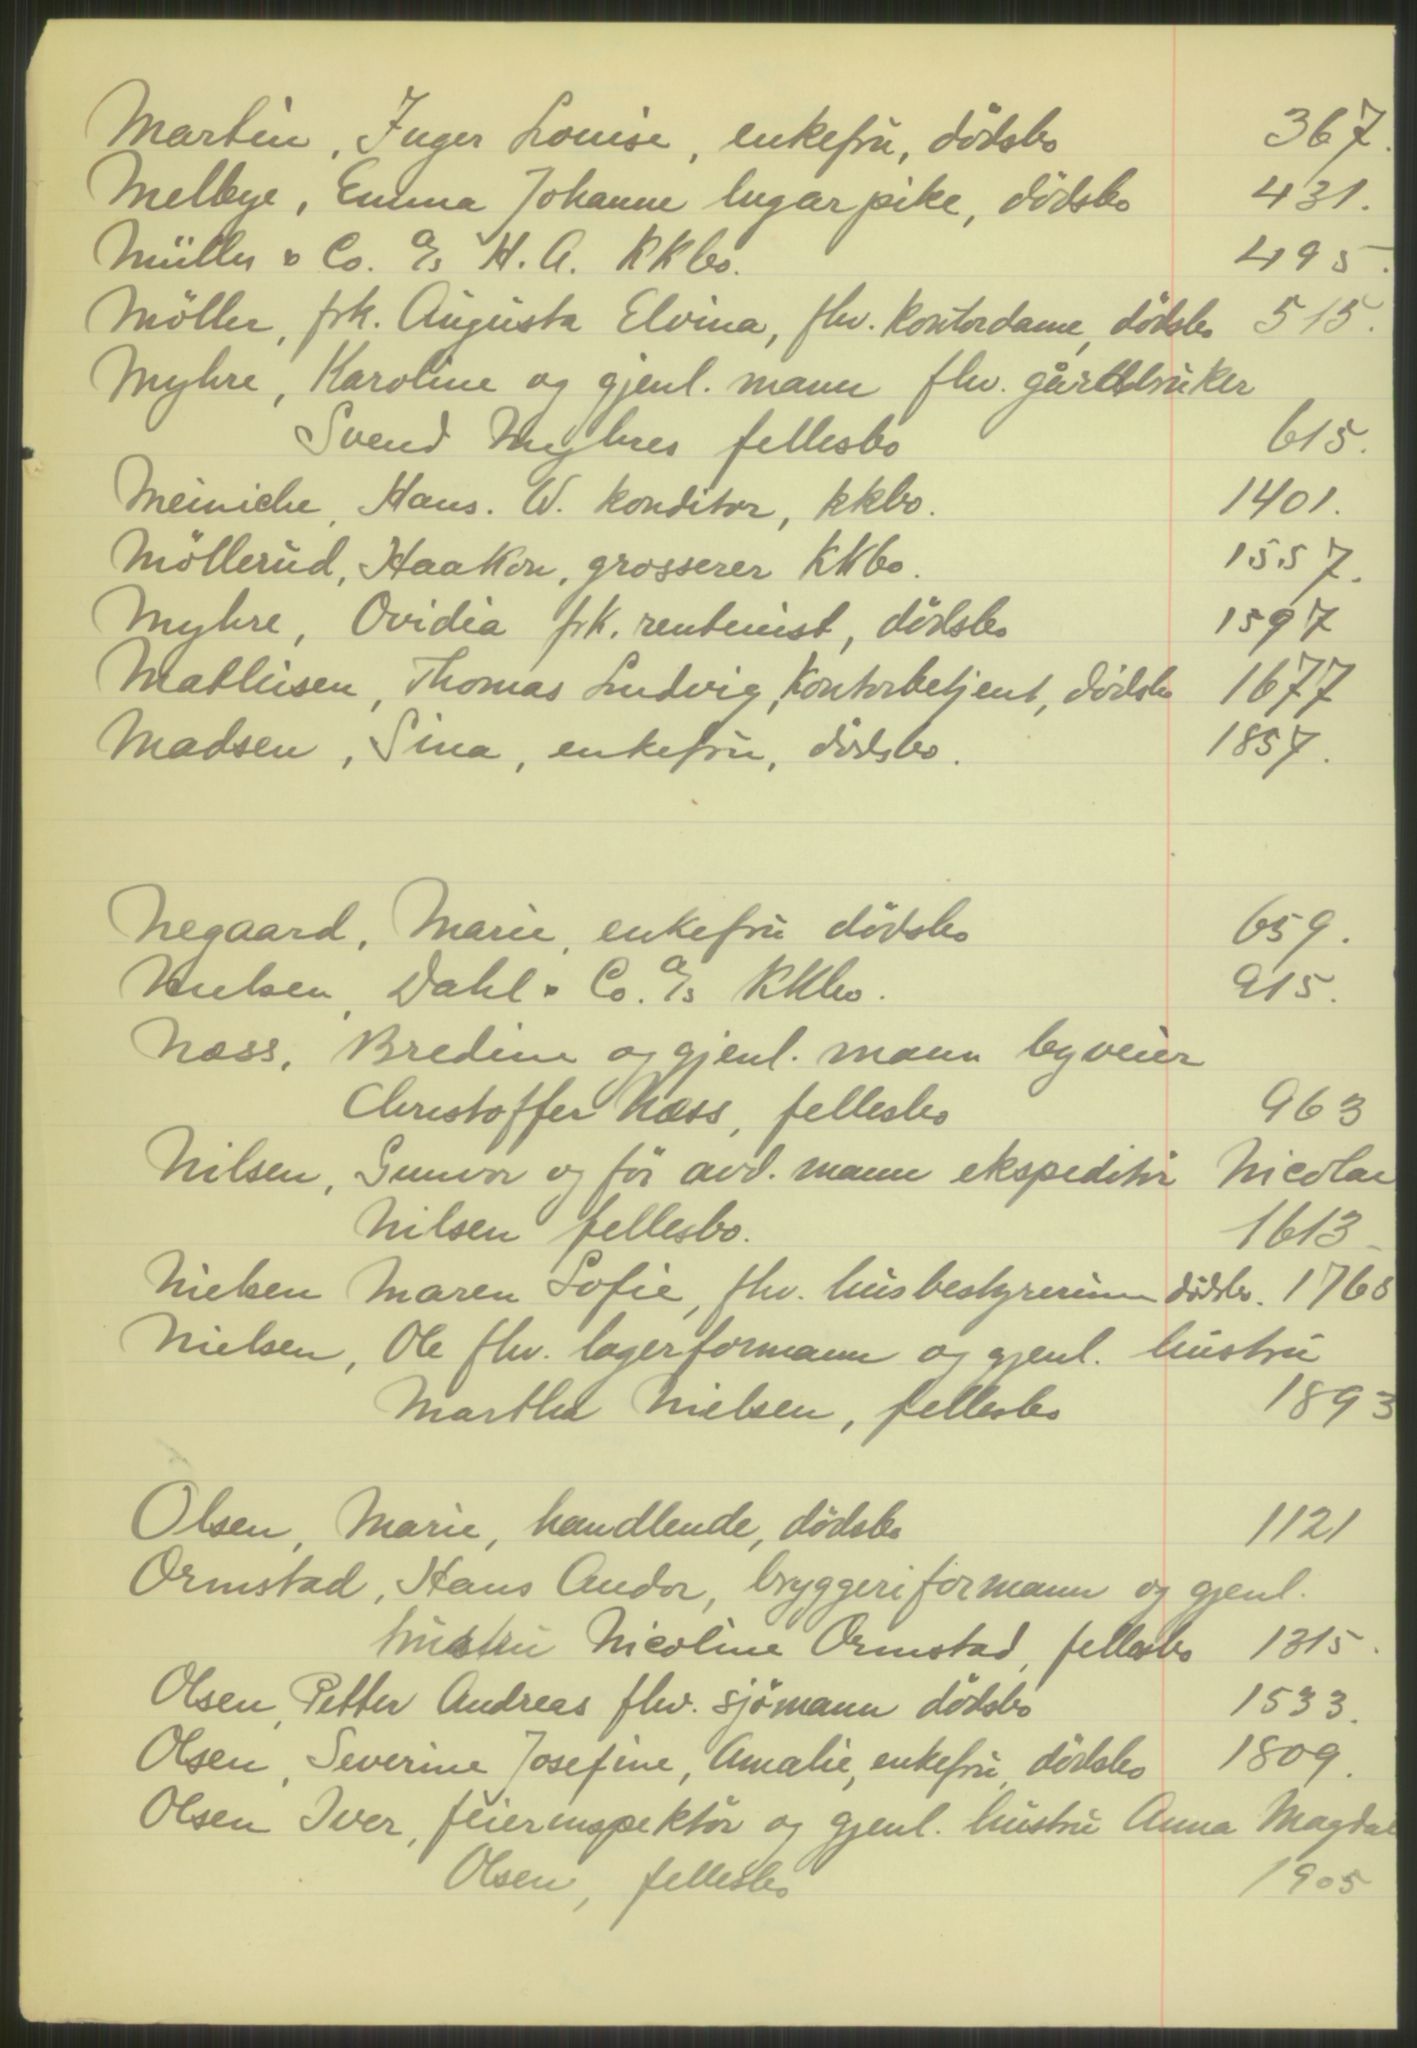 Martin, Inger Louise, enkefru, dödsbo 367.
Melbye, Emma Johanne lugarpike, dödsbo 431.
Müller & Co. A/S H.A. KKbo. 495.
Möller, frk. Augusta Elvina, fhv. kontordame, dödsbo 515.
Myhre, Karoline og gjenl. mann fhv. gårdbruker
Svend Myhres fellesbo 615.
Meiniche, Hans. W. konditor, kkbo. 1401.
Möllerud, Haakon, grosserer KKbo. 1557.
Myhre, Ovidia frk. rentenist, dödsbo 1597
Mathisen, Thomas Ludvig, Kontorbetjent, dödsbo 1677
Madsen, Sina, enkefru, dödsbo. 1857.
Negaard, Marie, enkefru dödsbo 659.
Nielsen, Dahl & Co. A/S KKbo. 915.
Næss, Bredine og gjenl. mann byveier
Christoffer Næss, fellesbo 963
Nilsen, Gunvor og för avd. mann ekspeditör Nicolai
Nilsen fellesbo. 1613
Nielsen Maren Sofie, fhv. husbestyrerinne dödsbo. 1768
Nielsen, Ole fhv. lagerformann og gjenl. hustru
Martha Nielsen, fellesbo 1893
Olsen, Marie, handlende, dödsbo 1121
Ormstad, Hans Andor, bryggeriformann og gjenl.
hustru Nicoline Ormstad, fellesbo 1315.
Olsen, Petter Andreas fhv. sjömann dödsbo 1533.
Olsen, Severine Josefine, Amalie, enkefru, dödsbo 1809.
Olsen Iver, feierinspektör og gjenl. hustru Anna Magdal
Olsen, fellesbo 1905